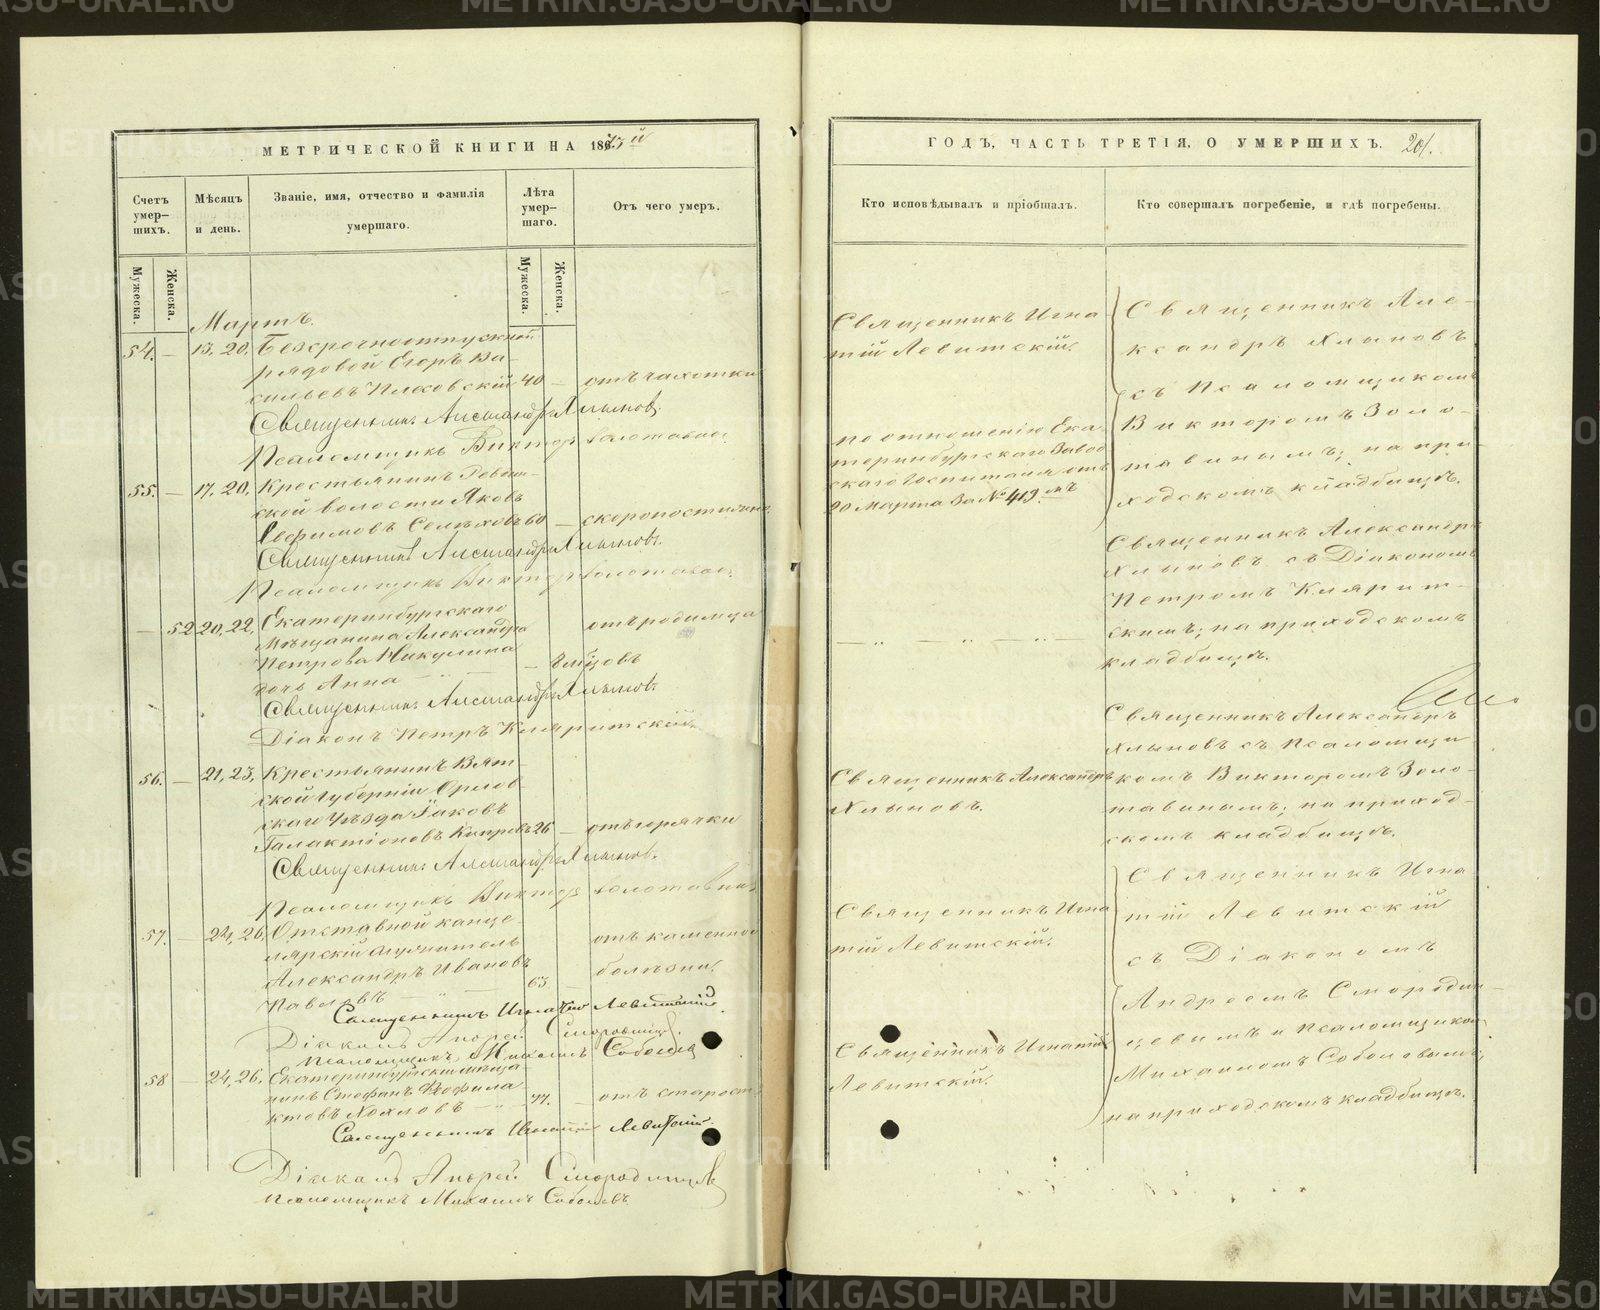 МЕТРИЧЕСКОЙ КНИГИ НА 1873й
Счетъ умер-шихъ.
Мѣсяцъ и день.
Званіе, имя, отчество и фамилія умершаго.
Лѣта умер-шаго.
Отъ чего умеръ.
Мужеска.
Женска.
Мужеска.
Женска.
Мартъ.
54. — 13, 20, Безсрочноотпускной
рядовой Егоръ Ва-
сильевъ 40 — отъ чахотки
Священникъ Александръ Хлыновъ.
Псаломщикъ Викторъ Золотавинъ.
55. — 17, 20, Крестьянинъ
ской волости Яковъ
Ефимовъ 60 — скоропостижно
Священникъ Александръ Хлыновъ.
Псаломщикъ Викторъ Золотавинъ.
— 52 20, 22, Екатеринбургскаго
Мѣщанина Александра отъ родимца
Петрова Никулина
дочь Анна
Священникъ Александръ Хлыновъ.
Діаконъ Петръ
56. — 21, 23, Крестьянинъ Вят-
ской Губерніи Орлов-
скаго Уѣзда Іаковъ
Галактіоновъ 26 — отъ горячки
Священникъ Александръ Хлыновъ.
Псаломщикъ Викторъ Золотавинъ.
57. — 24, 26, Отставной канце-
лярскій служитель отъ каменной
Александръ Ивановъ 63 — болѣзни.
Павловъ
Священникъ Игнатій Левитскій.
Діаконъ Андрей Смородинцевъ.
Псаломщикъ Михаилъ Соболевъ
58 — 24, 26, Екатеринбургскій мѣща
нинъ Стефанъ Феофила
ктовъ Хохловъ 77. — отъ старости
Священникъ Игнатій Левитскій.
Діаконъ Андрей Смородинцевъ
Псаломщикъ Михаилъ Соболевъ
ГОДЪ, ЧАСТЬ ТРЕТІЯ, О УМЕРШИХЪ. 201.
Кто исповѣдывалъ и пріобщалъ.
Кто совершалъ погребеніе, и гдѣ погребены.
Священникъ Игна
тій Левитскій.
по отношенію Ека-
теринбургскаго Завод
скаго Госпиталя отъ
20 Марта за № 419.мъ
Священникъ Александръ
Хлыновъ.
Священникъ Игна
тій Левитскій.
Священникъ Игнатій
Левитскій.
Священникъ Але-
ксандръ Хлыновъ
съ Псаломщикомъ
Викторомъ Золо-
тавинымъ; на при-
ходскомъ кладбищѣ.
Священникъ Александръ
Хлыновъ съ Діакономъ
Петромъ
скимъ; на приходскомъ
кладбищѣ.
Священникъ Александръ
Хлыновъ съ Псаломщи
комъ Викторомъ Золо-
тавинымъ; на приход-
скомъ кладбищѣ.
Священникъ Игна
тій Левитскій
съ Діакономъ
Андреемъ Смородин-
цевымъ и Псаломщикомъ
Михаиломъ Соболевымъ;
на приходскомъ кладбищѣ.
METRIKI.GASO-URAL.RU